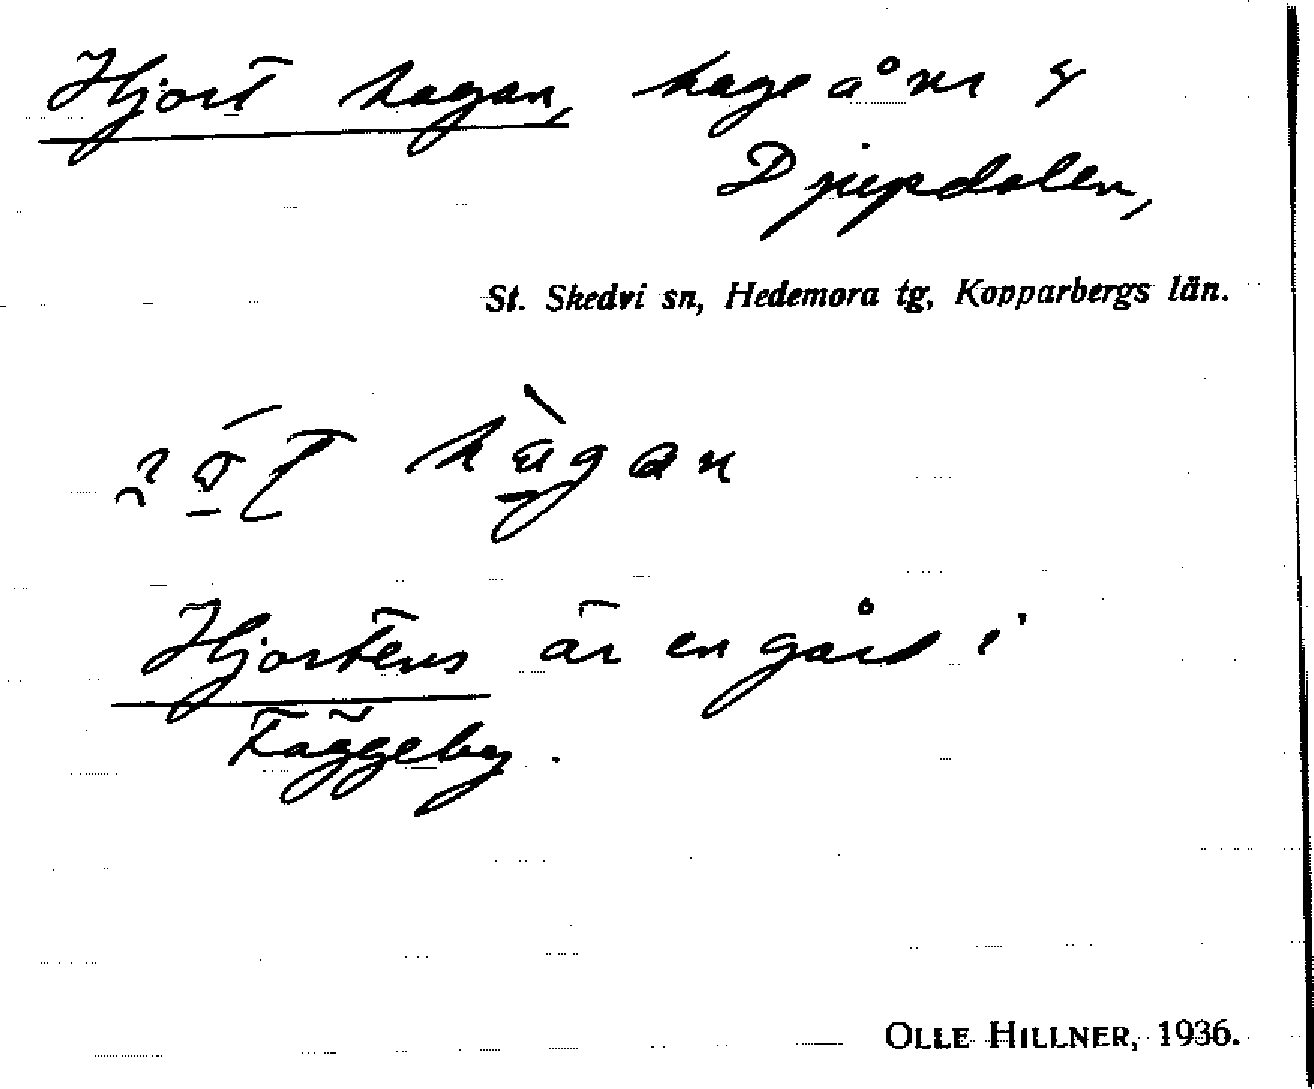 Hjort hagan, hage å nr 4
Djupdalen,
St. Skedvi sn, Hedemora tg, Kopparbergs län.
hàgan
Hjortens är en gård i
Fäggeby.
OLLE HILLNER, 1936.